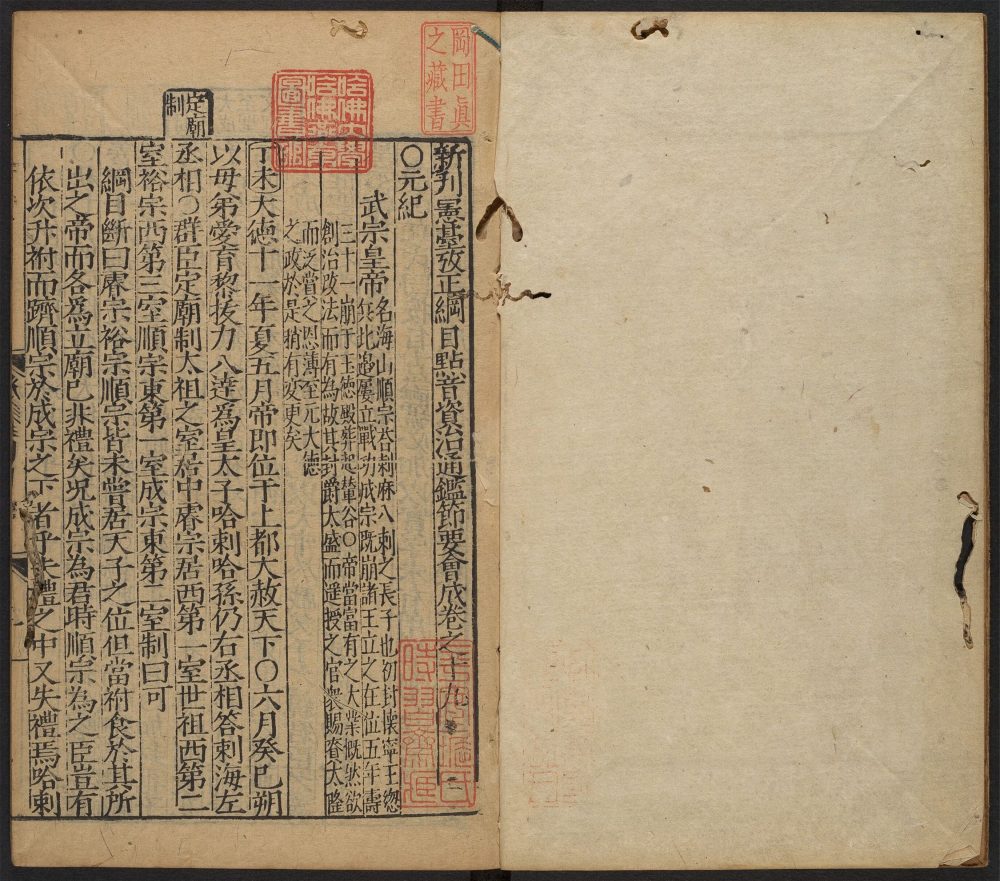 岡田眞
之藏書
哈佛大學
哈佛燕京
圖書館
新刋憲臺攷正綱目點音資治通鑑節要會成卷之十九
〇元紀
武宗皇帝
名海山順宗荅剌麻八剌之長子也初封懷寧王緫
兵北邉屢立戰功成宗既崩諸王立之在位五年壽
三十一崩于玉德殿葬起輦谷〇帝當富有之大業慨然欲
創治改法而有為故其封爵太盛而遥授之官衆賜賚太隆
而泛賞之恩薄至元大德
之政於是稍有変更矣
丁未大德十一年夏五月帝即位于上都大赦天下〇六月癸巳朔
以母弟愛育黎拔力八逹爲皇太子哈剌哈孫仍右丞相答剌海左
定廟
制
丞相〇群臣定廟制太祖之室居中睿宗居西第一室世祖西第二
室裕宗西第三室順宗東第一室成宗東第二室制曰可
綱目斷曰睿宗裕宗順宗皆未嘗居天子之位但當祔食於其所
出之帝而各爲立廟已非禮矣况成宗為君時順宗為之臣豈有
依次升祔而躋順宗於成宗之下者乎失禮之中又失禮焉哈剌